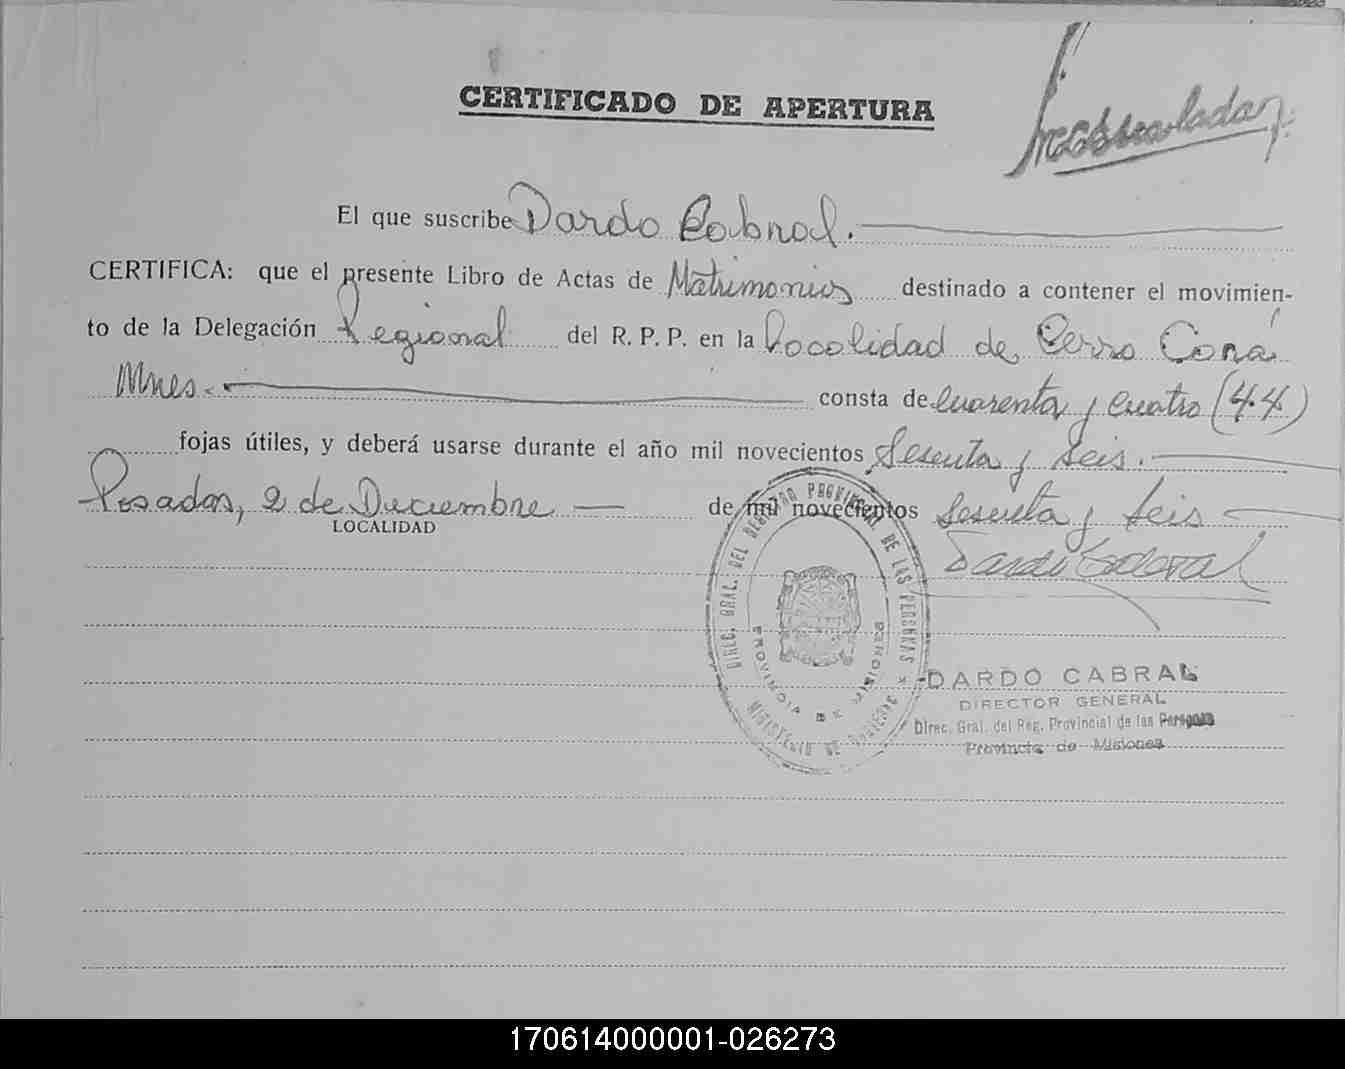 CERTIFICADO DE APERTURA
El que suscribe Dardo Cabral.
CERTIFICA: que el presente Libro de Actas de Matrimonios destinado a contener el movimien-
to de la Delegación Regional del R. P. P. en la Localidad de Cerro Corá
Mnes. consta de cuarenta y cuatro (44)
fojas útiles, y deberá usarse durante el año mil novecientos Sesenta y seis.
Posadas, 2 de Diciembre de mil novecientos Sesenta y seis
LOCALIDAD
Dardo Cabral
DIREC. GRAL. DEL REGISTRO PROVINCIAL DE LAS PERSONAS
PROVINCIA DE MISIONES
MINISTERIO DE GOBIERNO
DARDO CABRAL
DIRECTOR GENERAL
Direc. Gral. del Reg. Provincial de las Personas
Provincia de Misiones
170614000001-026273